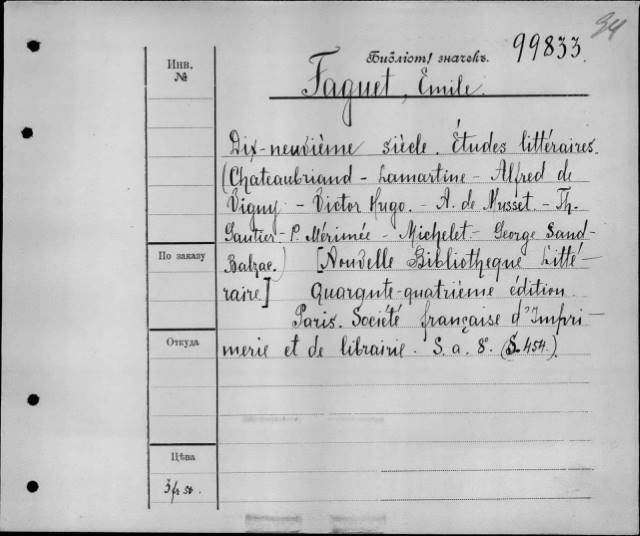 94
Инв.
№
Библіот! значекъ.
99833.
Faguet, Emile.
Dix-neuvième siècle. Études littéraires.
(Chateaubriand - Lamartine - Alfred de
Vigny - Victor Hugo. - A. de Musset. - Th.
Gautier - P. Mérimée - Michelet - George Sand -
По заказу
Balzac.) [Nouvelle Bibliotheque Litté-
raire] Quarante-quatrième édition
Paris. Société française d'Impri-
Откуда
merie et de librairie. S. a. 8°. (S. 454.)
Цѣна
3 fr 50.